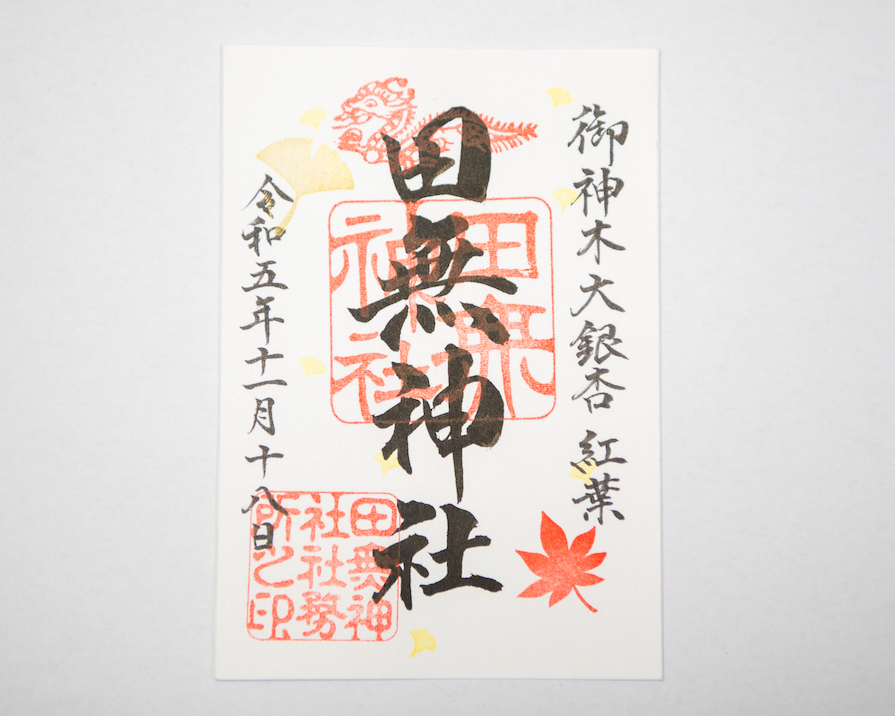 御神木大銀杏 紅葉
田無神社
令和五年十一月十八日
田無
神社
田無神
社社務
所之印